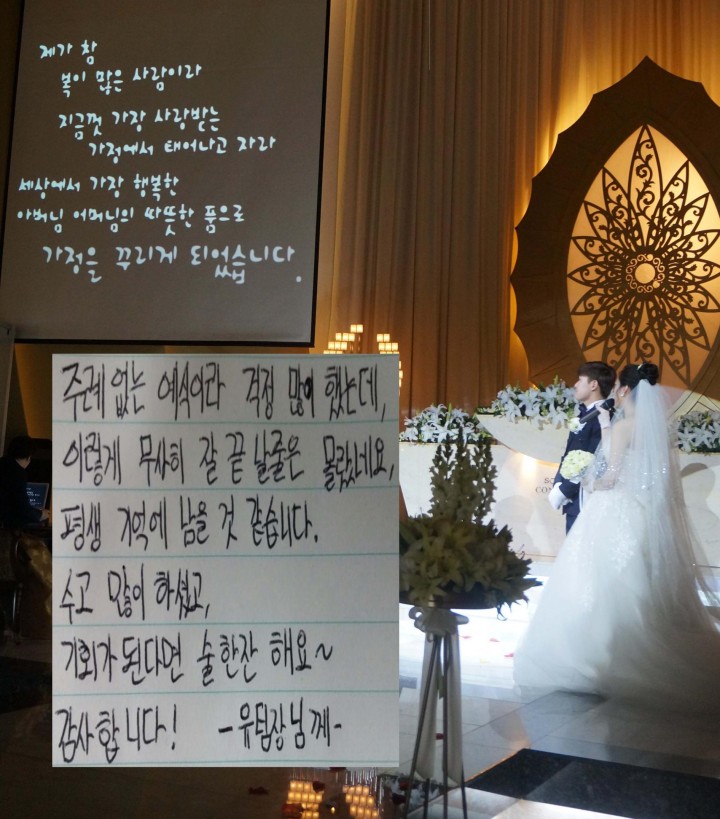 제가 참
복이 많은 사람이라
지금껏 가장 사랑받는
가정에서 태어나고 자라
세상에서 가장 행복한
아버님 어머님의 따뜻한 품으로
가정을 꾸리게 되었습니다.
주례 없는 예식이라 걱정 많이 했는데,
이렇게 무사히 잘 끝날줄은 몰랐네요,
평생 기억에 남을 것 같습니다.
수고 많이 하셨고,
기회가 된다면 술 한잔 해요~
감사합니다! -유팀장님께-